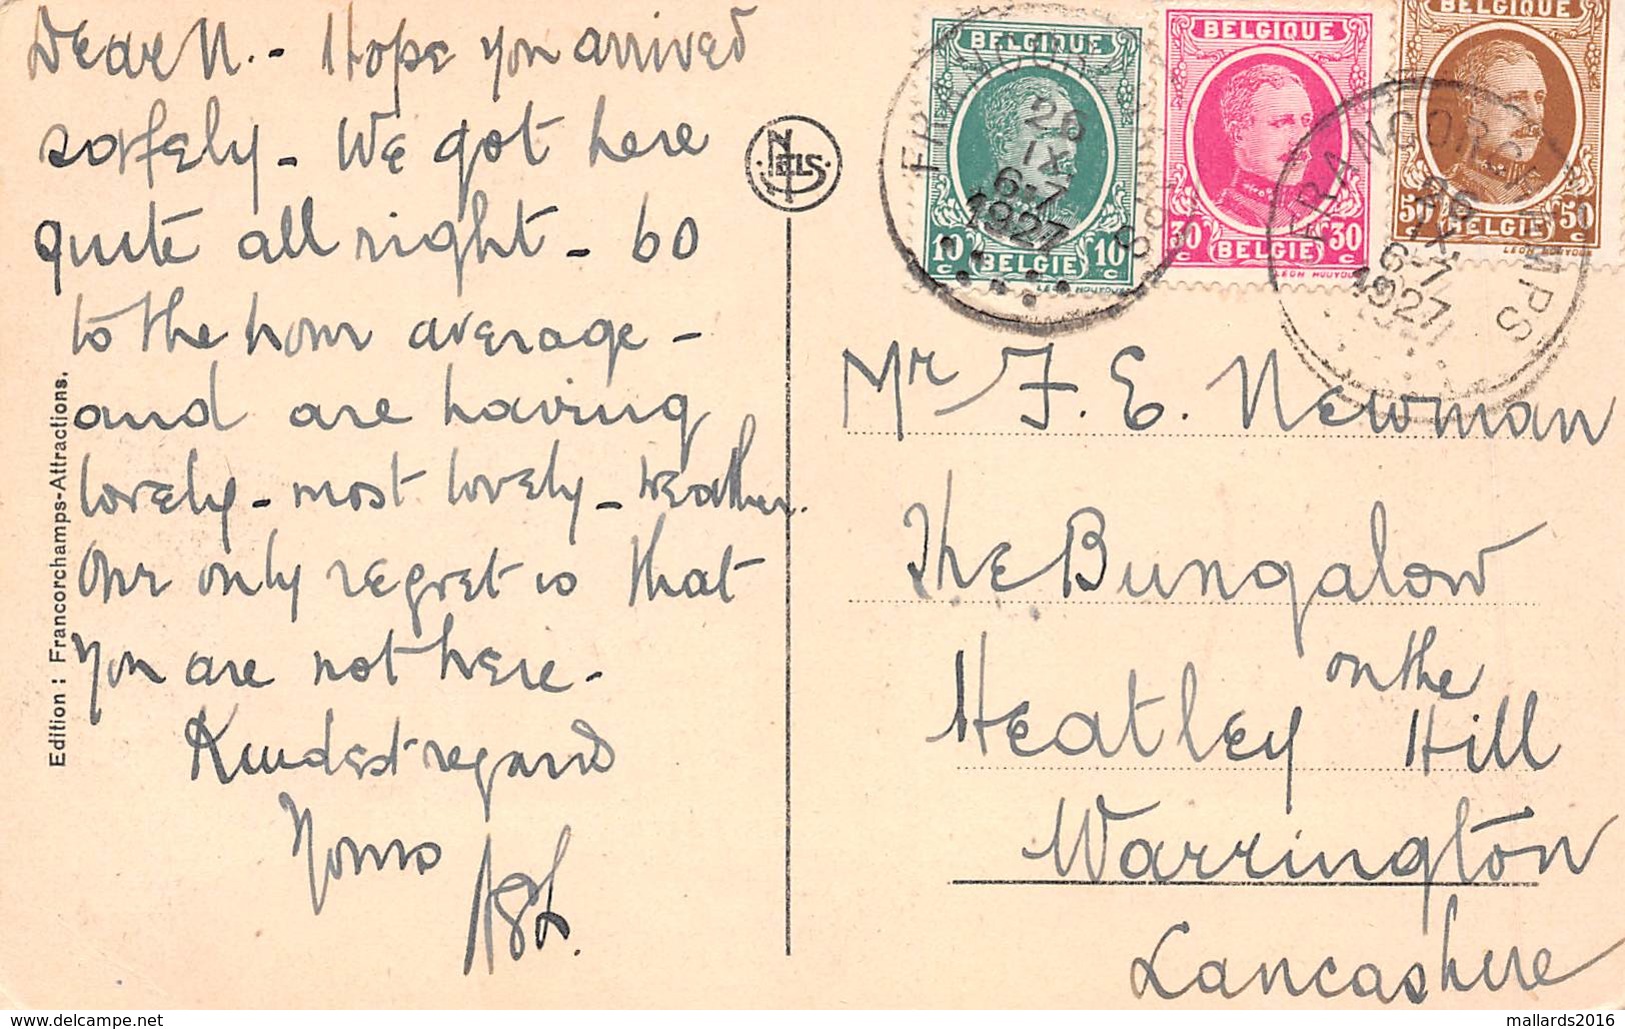 Dear N. - Hope you arrived
safely - We got here
quite all right - 60
to the hour average -
and are having
lovely - most lovely - weather.
Our only regret is that
you are not here -
Kindest regard
Yours
Edition : Francorchamps-Attractions.
NELS
BELGIQUE
10c 10c
BELGIE
LEON HOUYOUX
BELGIQUE
30c 30c
BELGIE
LEON HOUYOUX
BELGIQUE
50c 50c
BELGIE
LEON HOUYOUX
FRANCORCHAMPS
26
IX
6-7
1927
FRANCORCHAMPS
26
IX
6-7
1927
Mr F. E. Newman
The Bungalow
on the
Heatley Hill
Warrington
Lancashire
mallards2016